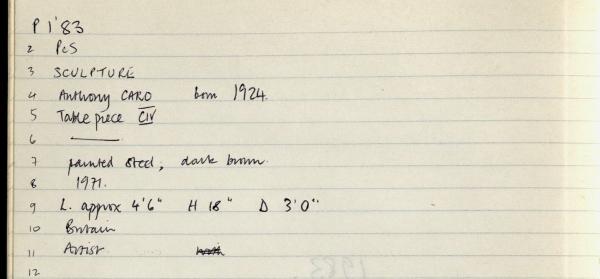 P 1'83
2 PcS
3 SCULPTURE
4 Anthony CARO born 1924.
5 Table piece CIV
6 ———
7 painted steel, dark brown.
8 1971.
9 L. approx 4'6" H 18" D 3'0"
10 Britain
11 Artist
12